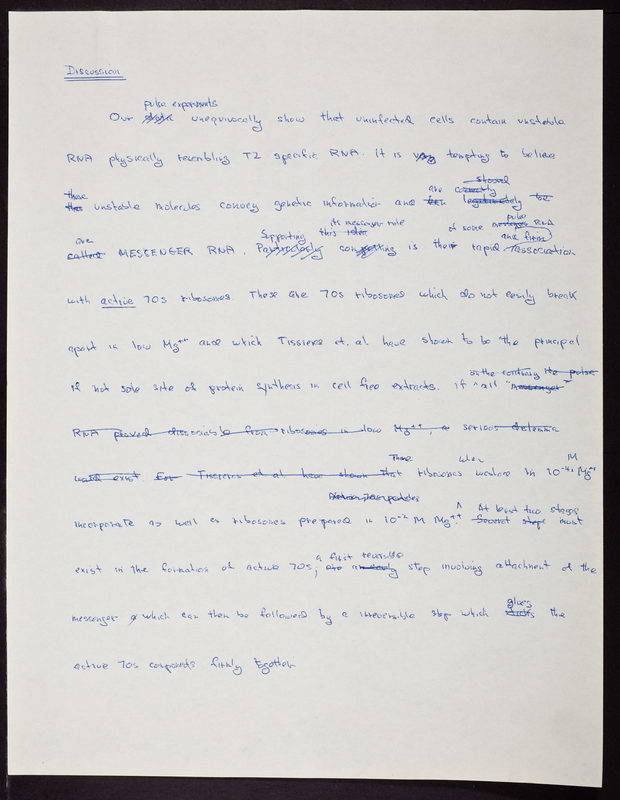 Discussion
pulse experiments
Our data unequivocally show that uninfected cells contain unstable
RNA physically resembling T2 specific RNA. It is very tempting to believe
these
unstable molecules convey genetic information and are
are
called MESSENGER RNA. Supporting its messenger role is the rapid
of some pulse RNA
and firm
association
with active 70s ribosomes. These are 70s ribosomes which do not easily break
apart in low Mg++ and which Tissieres et. al have shown to be the principal
on the contrary the pulse
if not sole site of protein synthesis in cell free extracts. If ^ all "messenger"
RNA proved dissociable from ribosomes in low Mg++, a serious dilemma
would exist. For Tissieres et al have shown that These ribosomes when washed in 10-4 M Mg++
incorporate as well as ribosomes prepared in 10-2 M Mg++. ^ At least two stages
Several steps must
a first reversible
exist in the formation of active 70s; step involving attachment of the
messenger which can then be followed by a irreversible step which
glues
the
active 70s compounds firmly together